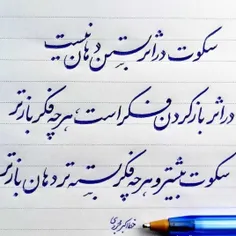 سکوت در اثر بستن دهان نیست
در اثر باز کردن فکر است، هر چه فکر بازتر
سکوت بیشتر و هر چه فکر بسته تر دهان بازتر